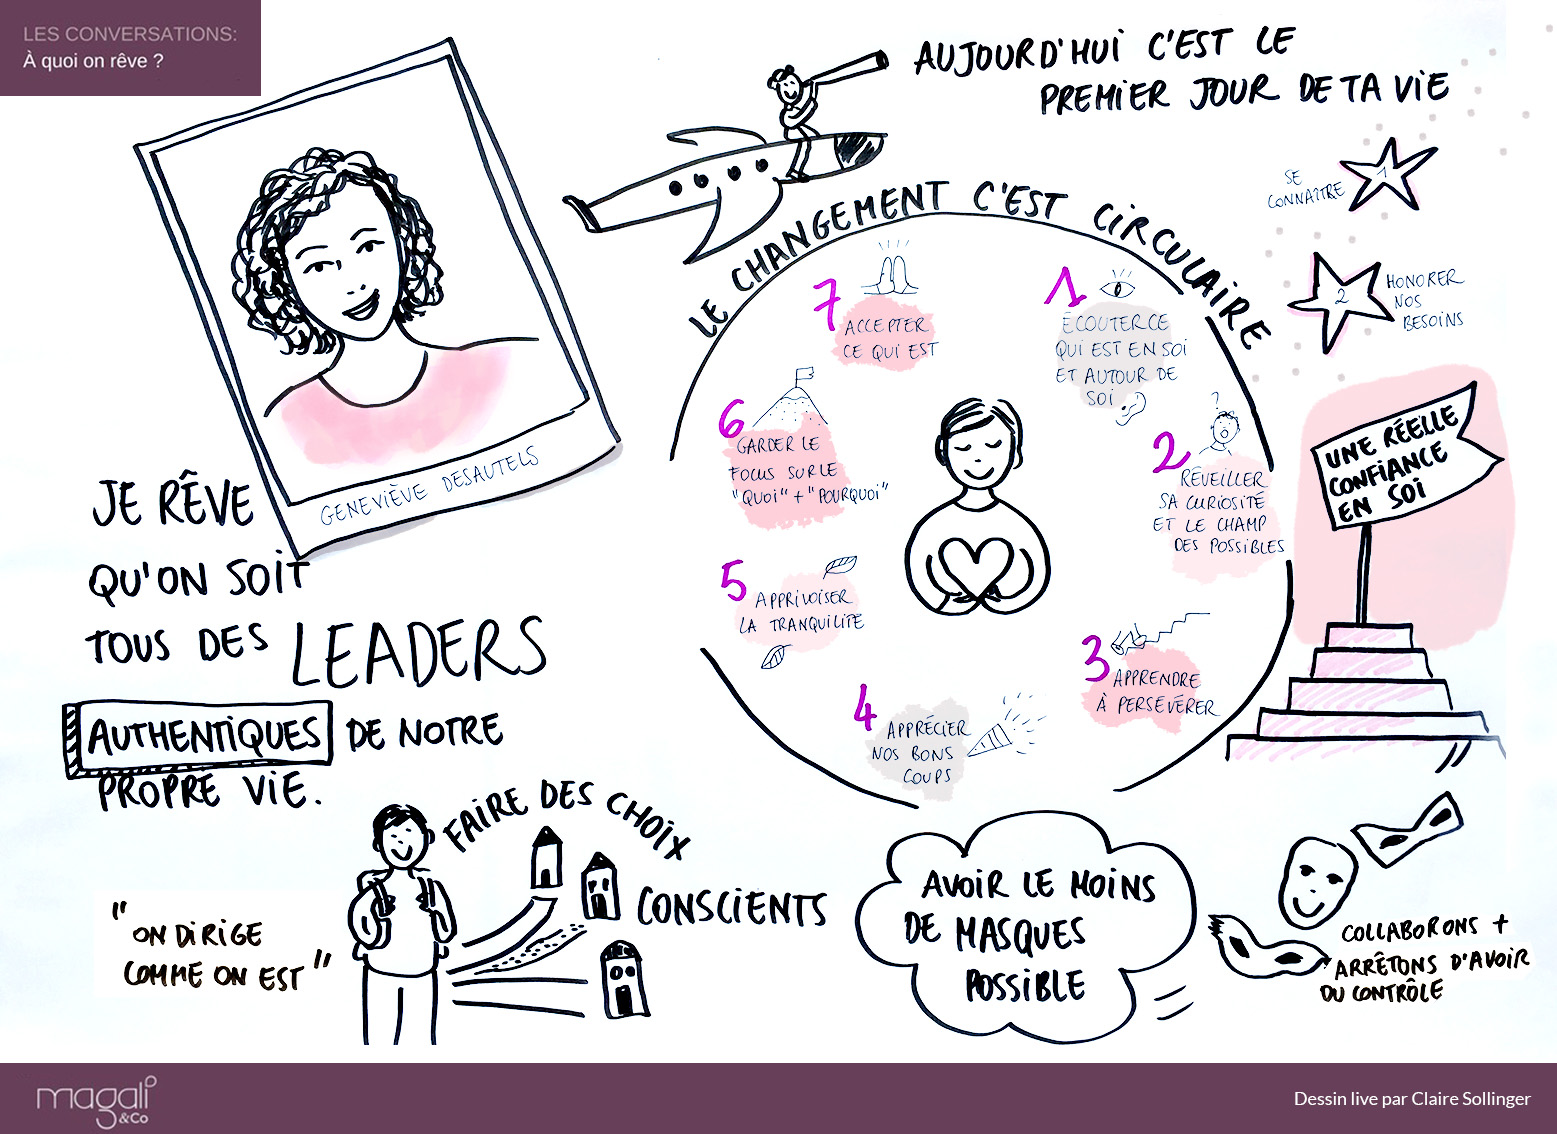 LES CONVERSATIONS:
À quoi on rêve ?
GENEVIÈVE DESAUTELS
JE RÊVE
QU'ON SOIT
TOUS DES LEADERS
AUTHENTIQUES DE NOTRE
PROPRE VIE.
"ON DIRIGE
COMME ON EST"
FAIRE DES CHOIX
CONSCIENTS
AUJOURD'HUI C'EST LE
PREMIER JOUR DE TA VIE
LE CHANGEMENT C'EST CIRCULAIRE
1
ÉCOUTER CE
QUI EST EN SOI
ET AUTOUR DE
SOI
?
2
RÉVEILLER
SA CURIOSITÉ
ET LE CHAMP
DES POSSIBLES
3
APPRENDRE
À PERSÉVÉRER
4
APPRÉCIER
NOS BONS
COUPS
5
APPRIVOISER
LA TRANQUILITÉ
6
GARDER LE
FOCUS SUR LE
"QUOI" + "POURQUOI"
7
ACCEPTER
CE QUI EST
1
SE
CONNAÎTRE
2
HONORER
NOS
BESOINS
UNE RÉELLE
CONFIANCE
EN SOI
AVOIR LE MOINS
DE MASQUES
POSSIBLE
COLLABORONS +
ARRÊTONS D'AVOIR
DU CONTRÔLE
magali
&Co
Dessin live par Claire Sollinger